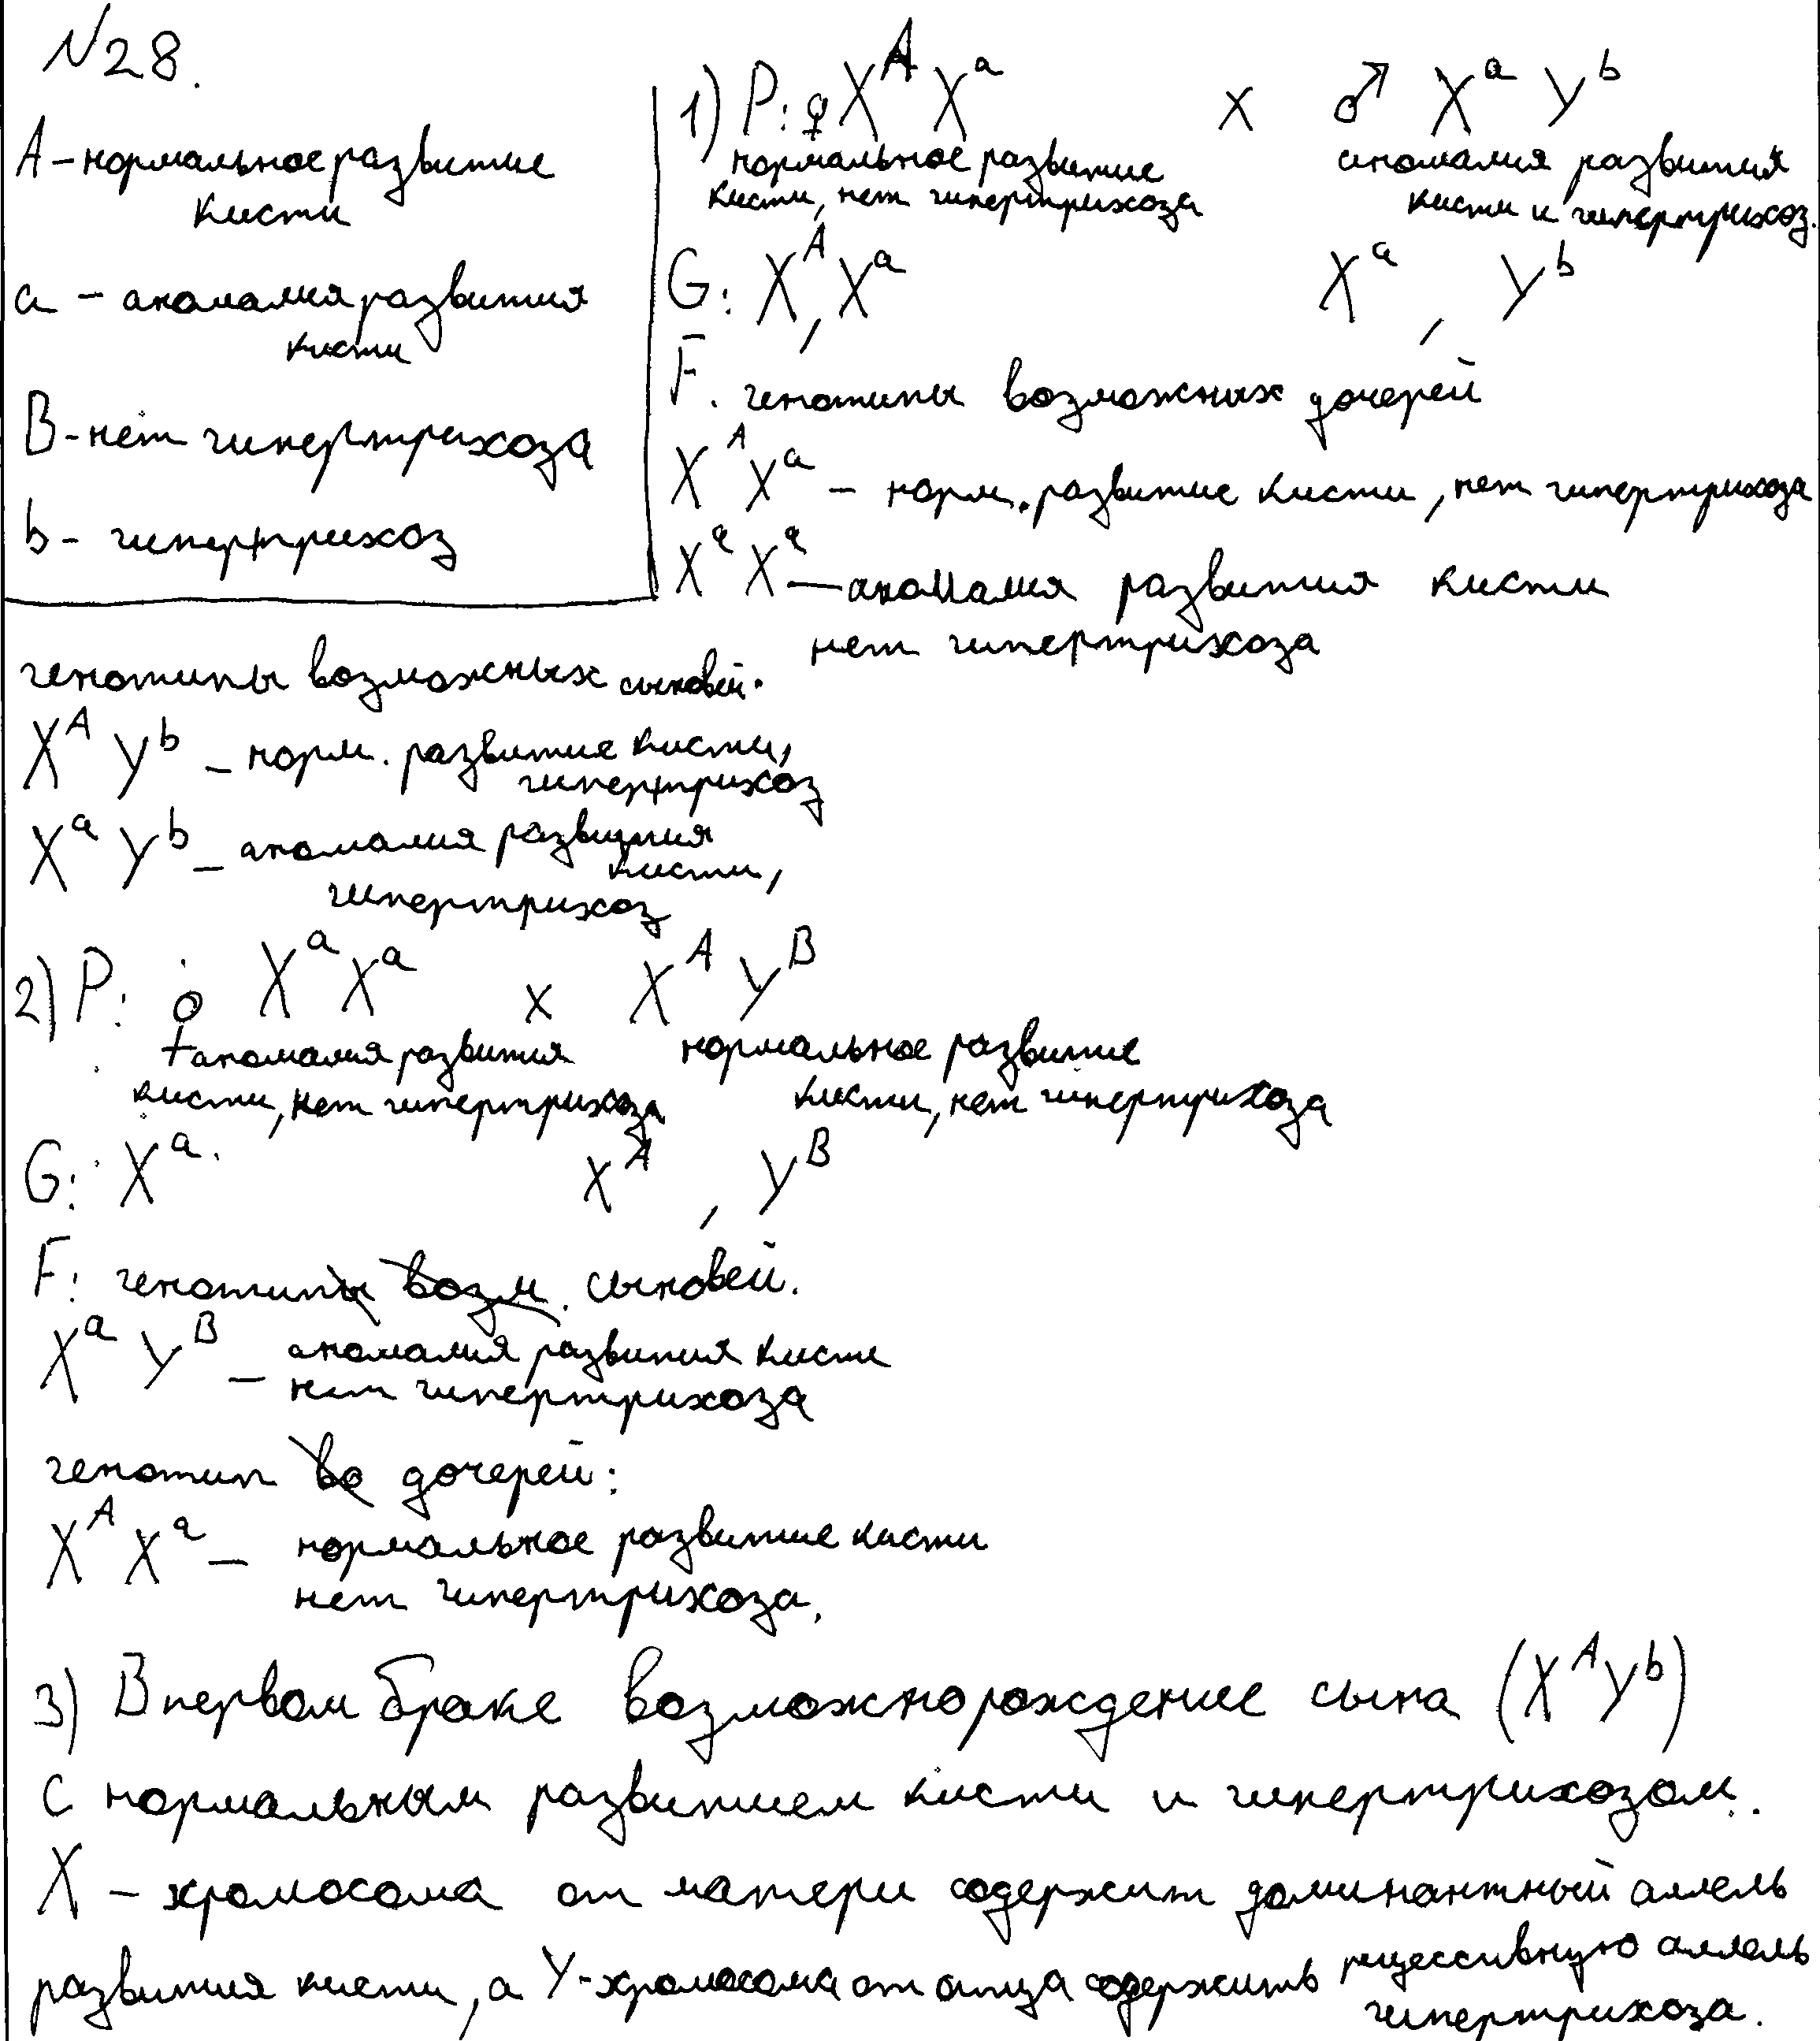 N28.
А – нормальное развитие
кисти
а – аномалия развития
кисти
В - нет гипертрихоза
b - гипертрихоз
1) P: ♀ X^A X^a x ♂ X^a Y^b
нормальное развитие
кисти, нет гипертрихоза
аномалия развития
кисти и гипертрихоз.
G: X^A, X^a X^a, Y^b
F. генотипы возможных дочерей
X^A X^a – норм. развитие кисти, нет гипертрихоза
X^a X^a — аномалия развития кисти
нет гипертрихоза
генотипы возможных сыновей.
X^A Y^b – норм. развитие кисти,
гипертрихоз
X^a Y^b – аномалия развития
кисти,
гипертрихоз
2) P: ♀ X^a X^a x X^A Y^B
аномалия развития
кисти, нет гипертрихоза
нормальное развитие
кисти, нет гипертрихоза
G: X^a. X^A, Y^B
F: генотипы возм. сыновей.
X^a Y^B – аномалия развития кисти
нет гипертрихоза
генотип во дочерей:
X^A X^a – нормальное развитие кисти
нет гипертрихоза.
3) В первом браке возможно рождение сына (X^A Y^b)
с нормальным развитием кисти и гипертрихозом.
X – хромосома от матери содержит доминантный аллель
развития кисти, а Y-хромосома от отца содержить рецессивную аллель
гипертрихоза.